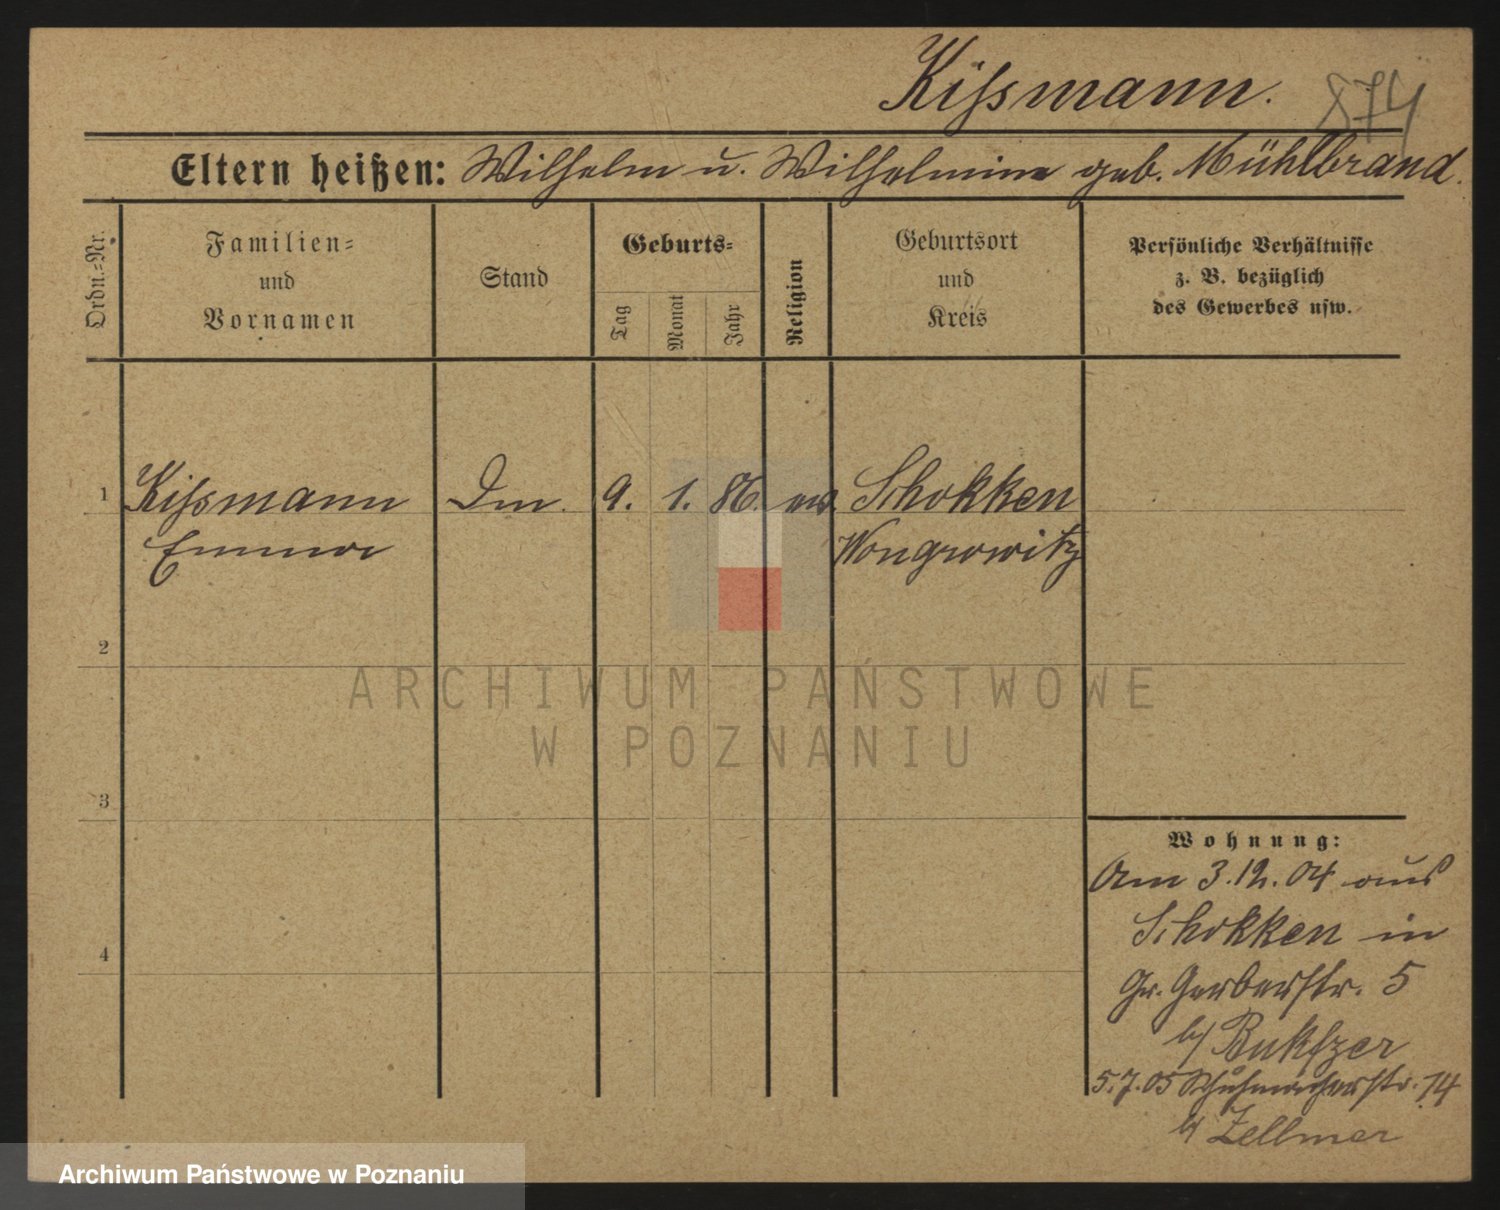 Kißmann. 874
Eltern heißen: Wilhelm u. Wilhelmine geb. Mühlbrand.
Ordn.=Nr.
Familien=
und
Vornamen
Stand
Geburts=
Tag
Monat
Jahr
Religion
Geburtsort
und
Kreis
Persönliche Verhältnisse
z. B. bezüglich
des Gewerbes usw.
1 Kißmann Dm. 9. 1. 86. ev. Schokken
Emma Wongrowitz
2
ARCHIWUM PAŃSTWOWE
W POZNANIU
3
Wohnung:
Am 3.12.04 aus
Schokken in
4
Gr. Gerberstr. 5
b/ Bukszer
5.7.05 Schuhmacherstr. 14
b/ Zellmer
Archiwum Państwowe w Poznaniu